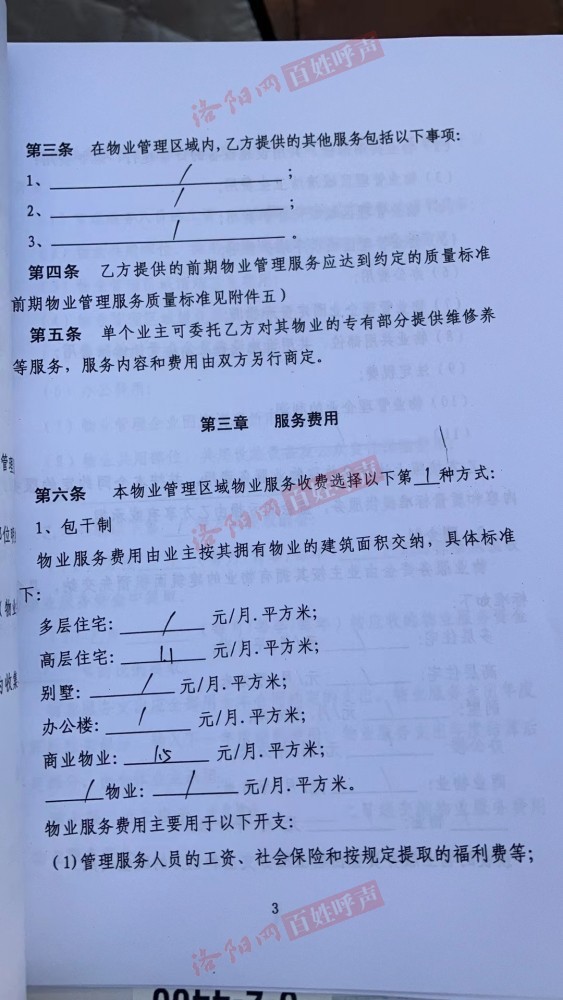 洛阳网 百姓呼声
第三条 在物业管理区域内,乙方提供的其他服务包括以下事项:
1、 / ;
2、 / ;
3、 / 。
第四条 乙方提供的前期物业管理服务应达到约定的质量标准
前期物业管理服务质量标准见附件五)
第五条 单个业主可委托乙方对其物业的专有部分提供维修养
等服务，服务内容和费用由双方另行商定。
第三章 服务费用
管理
第六条 本物业管理区域物业服务收费选择以下第 1 种方式:
洛阳网 百姓呼声
1、包干制
物业服务费用由业主按其拥有物业的建筑面积交纳，具体标准
下:
多层住宅: / 元/月.平方米;
高层住宅: 1.1 元/月.平方米;
收集
别墅: / 元/月.平方米;
办公楼: / 元/月.平方米;
商业物业: 1.5 元/月.平方米;
/ 物业: / 元/月.平方米。
物业服务费用主要用于以下开支:
(1)管理服务人员的工资、社会保险和按规定提取的福利费等;
3
洛阳网 百姓呼声